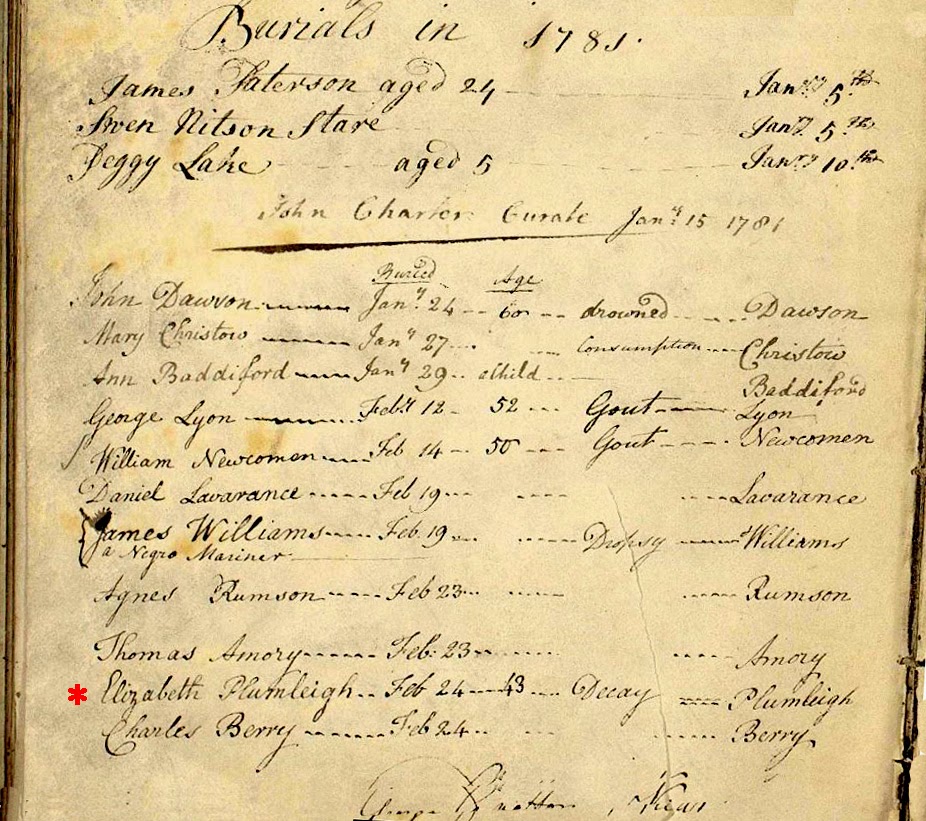 Burials in 1781.
James Paterson aged 24 Jan.ry 5th
Swen Nitson Stare Jan.ry 5th
Peggy Lake aged 5 Jan.ry 10th
John Charter Curate Jan.y 15 1781
Buried Age
John Dawson Jan.y 24 60 drowned Dawson
Mary Christow Jan.y 27 Consumption Christow
Ann Baddiford Jan.y 29 a Child Baddiford
George Lyon Feb.y 12 52 Gout Lyon
William Newcomen Feb 14 50 Gout Newcomen
Daniel Lavarance Feb 19 Lavarance
James Williams Feb. 19 Dropsy Williams
a Negro Mariner
Agnes Rumson Feb 23 Rumson
Thomas Amory Feb: 23 Amory
* Elizabeth Plumleigh Feb 24 43 Decay Plumleigh
Charles Berry Feb 24 Berry
Vicar